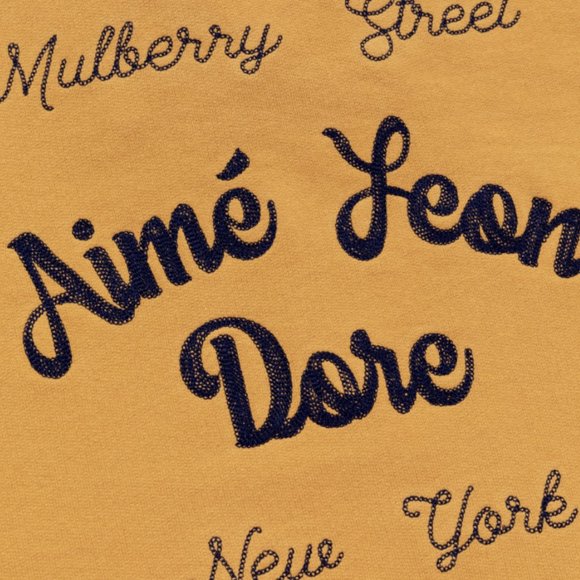 Mulberry Street
Aimé Leon
Dore
New York